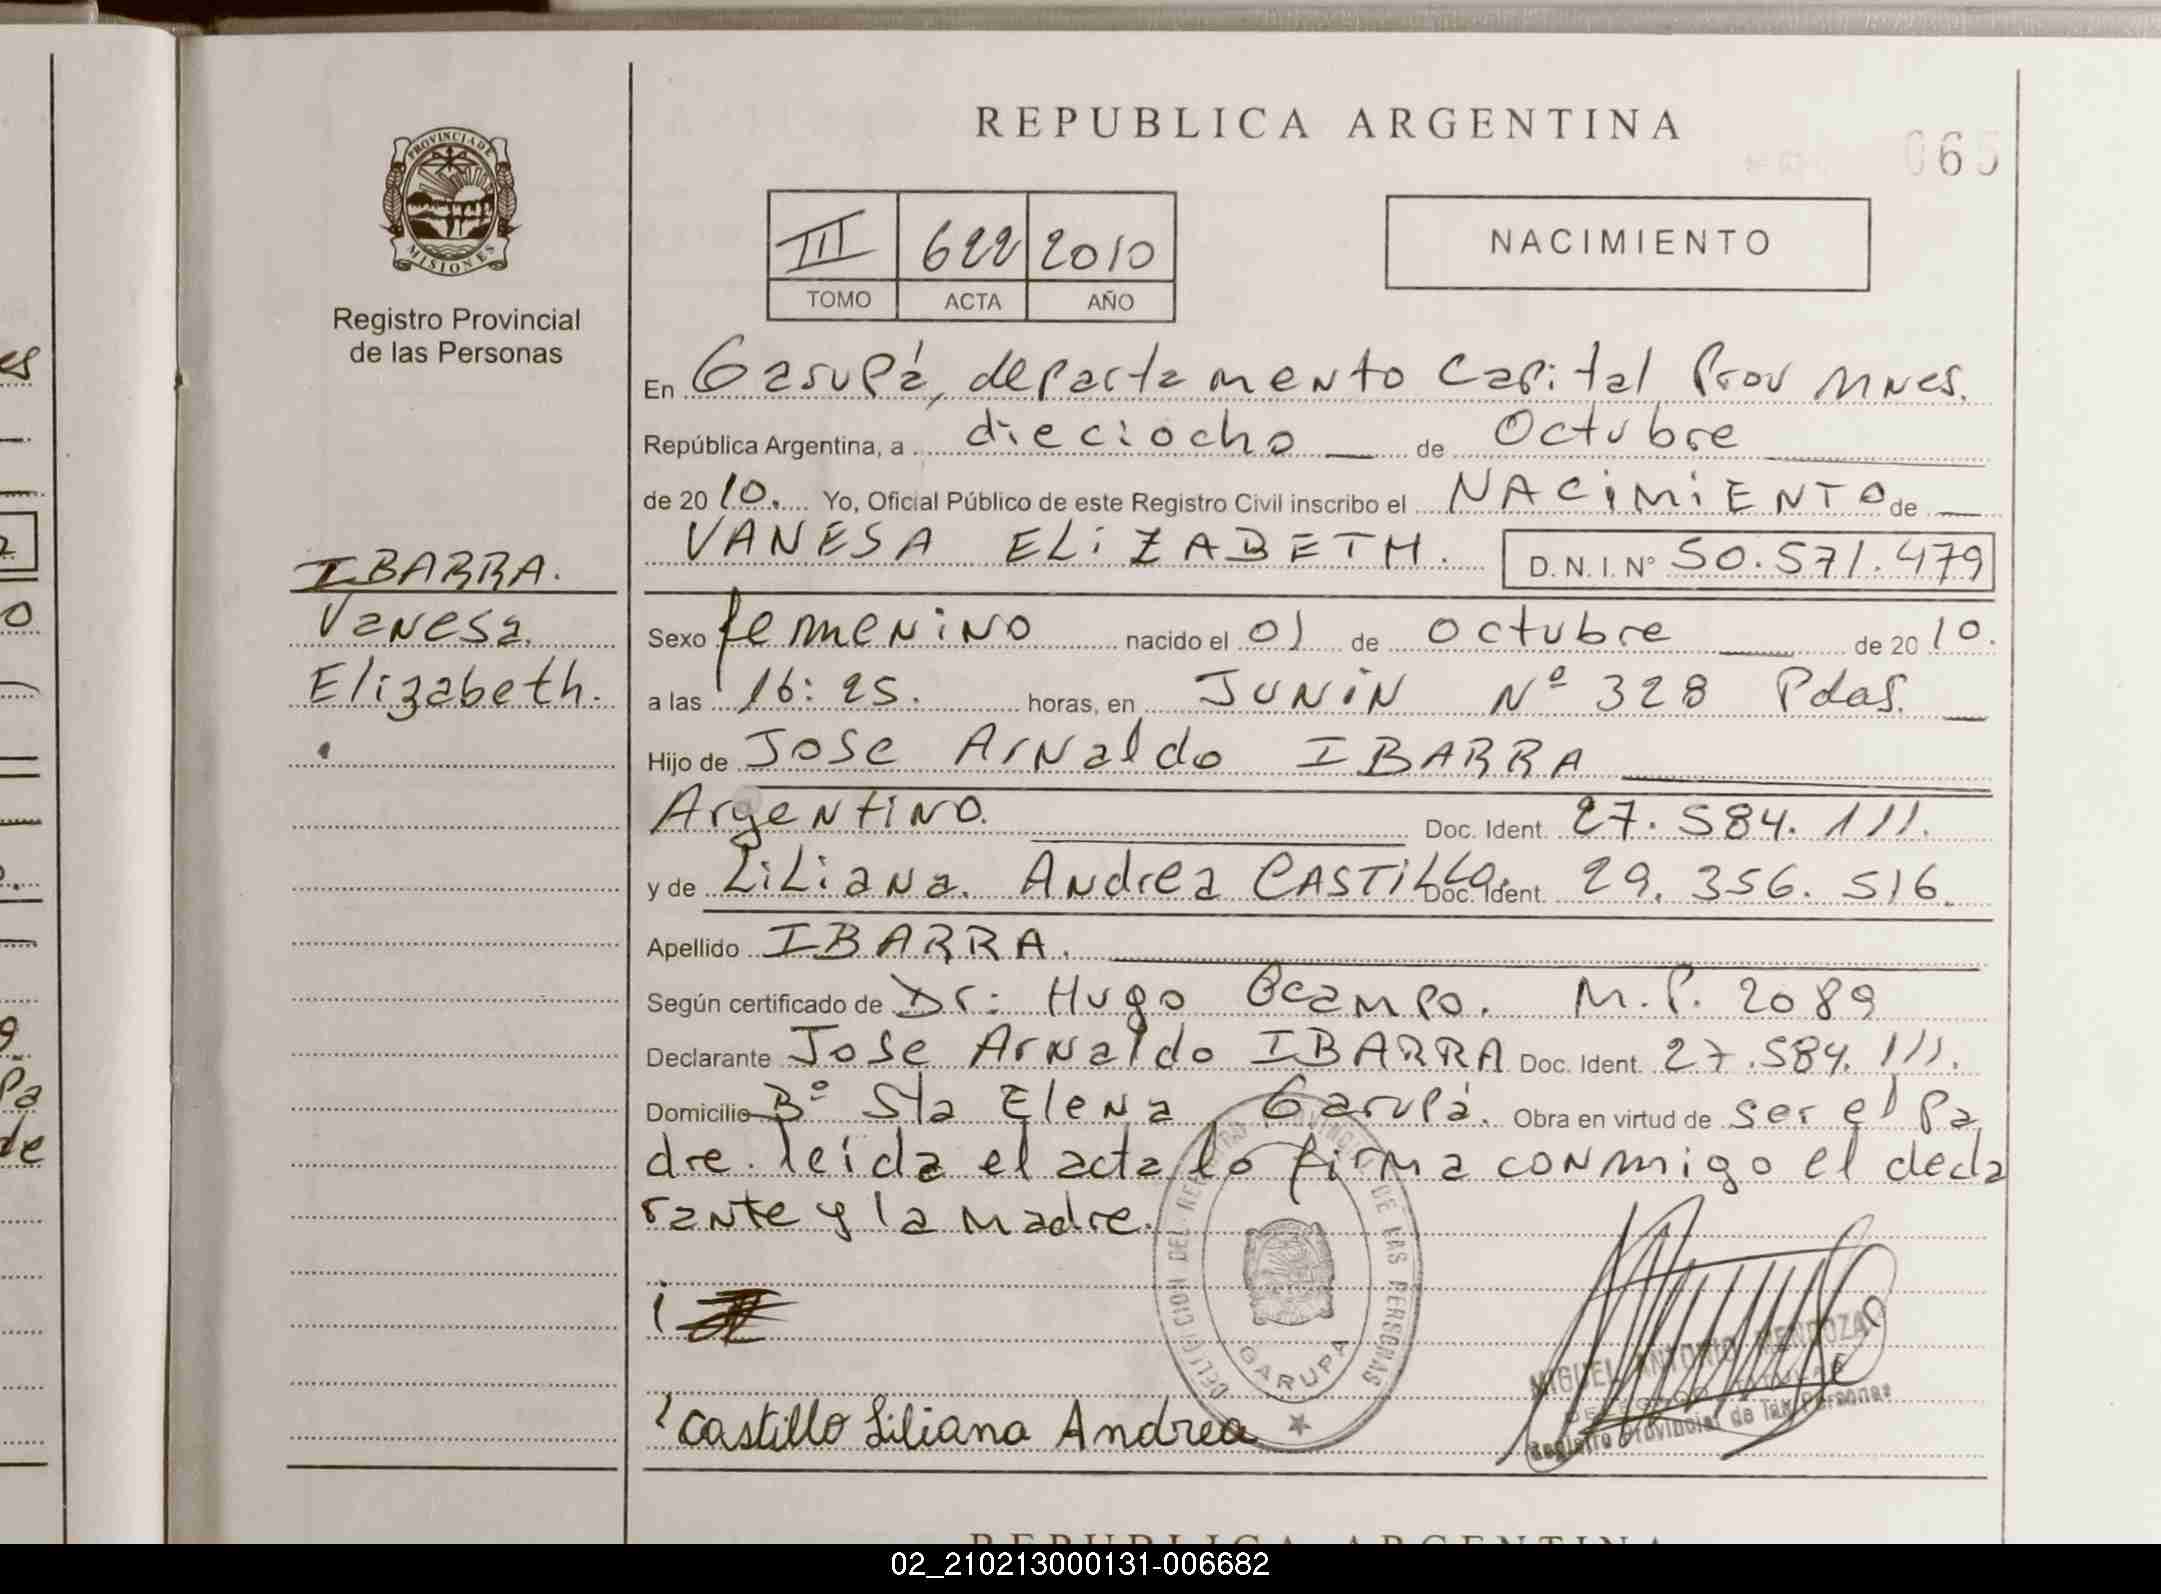 REPUBLICA ARGENTINA
065
PROVINCIA DE
MISIONES
Registro Provincial
de las Personas
III 622 2010
TOMO ACTA AÑO
NACIMIENTO
En Garupá, departamento Capital Prov Mnes.
República Argentina, a dieciocho de Octubre
de 2010. Yo, Oficial Público de este Registro Civil inscribo el NACIMIENTO de
VANESA ELIZABETH. D.N.I. Nº 50.571.479
IBARRA.
Vanesa
Elizabeth.
Sexo femenino nacido el 01 de octubre de 2010.
a las 16:25. horas, en JUNIN Nº 328 Pdas.
Hijo de Jose Arnaldo IBARRA
Argentino. Doc. Ident. 27.584.111.
y de Liliana Andrea CASTILLO. Doc. Ident. 29.356.516.
Apellido IBARRA.
Según certificado de Dr: Hugo Ocampo. M.P. 2089
Declarante Jose Arnaldo IBARRA Doc. Ident. 27.584.111.
Domicilio Bº Sta Elena Garupá. Obra en virtud de ser el Pa
dre. leída el acta lo firma conmigo el decla
rante y la madre.
DELEGACION DEL REGISTRO PROVINCIAL DE LAS PERSONAS
GARUPA
MIGUEL ANTONIO MENDOZA
DELEGADO TITULAR
Registro Provincial de las Personas
Castillo Liliana Andrea
REPUBLICA ARGENTINA
02_210213000131-006682